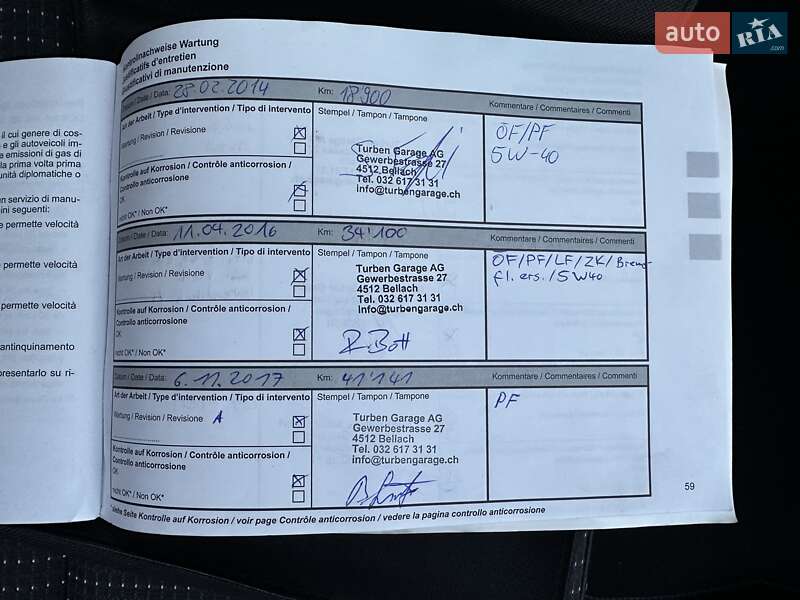 auto RIA.com
Kontrollnachweise Wartung
d'entretien
di manutenzione
Date / Data: 28.02.2014 Km: 18'900 Kommentare / Commentaires / Commenti
Art der Arbeit / Type d'intervention / Tipo di intervento
Stempel / Tampon / Tampone
Wartung / Revision / Revisione
Kontrolle auf Korrosion / Contrôle anticorrosion /
Controllo anticorrosione
OK
nicht OK* / Non OK*
Turben Garage AG
Gewerbestrasse 27
4512 Bellach
Tel. 032 617 31 31
info@turbengarage.ch
ÖF/PF
5W-40
Datum / Date / Data: 11.04.2016 Km: 34'100 Kommentare / Commentaires / Commenti
Art der Arbeit / Type d'intervention / Tipo di intervento
Stempel / Tampon / Tampone
Wartung / Revision / Revisione
Kontrolle auf Korrosion / Contrôle anticorrosion /
Controllo anticorrosione
OK
nicht OK* / Non OK*
Turben Garage AG
Gewerbestrasse 27
4512 Bellach
Tel. 032 617 31 31
info@turbengarage.ch
R. Bott
ÖF/PF/LF/ZK/Brems
fl. ers./5W40
Datum / Date / Data: 6.11.2017 Km: 41'141 Kommentare / Commentaires / Commenti
Art der Arbeit / Type d'intervention / Tipo di intervento
Stempel / Tampon / Tampone
Wartung / Revision / Revisione A
Kontrolle auf Korrosion / Contrôle anticorrosion /
Controllo anticorrosione
OK
nicht OK* / Non OK*
Turben Garage AG
Gewerbestrasse 27
4512 Bellach
Tel. 032 617 31 31
info@turbengarage.ch
PF
* siehe Seite Kontrolle auf Korrosion / voir page Contrôle anticorrosion / vedere la pagina controllo anticorrosione
59
il cui genere di cos-
e gli autoveicoli im-
e emissioni di gas di
la prima volta prima
unità diplomatiche o
en servizio di manu-
ini seguenti:
e permette velocità
e permette velocità
permette velocità
antinquinamento
presentarlo su ri-